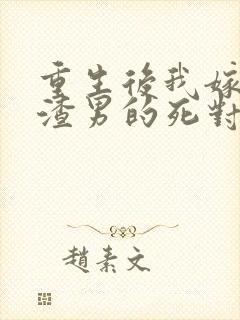 重生後我嫁
渣男的死對
趙素文